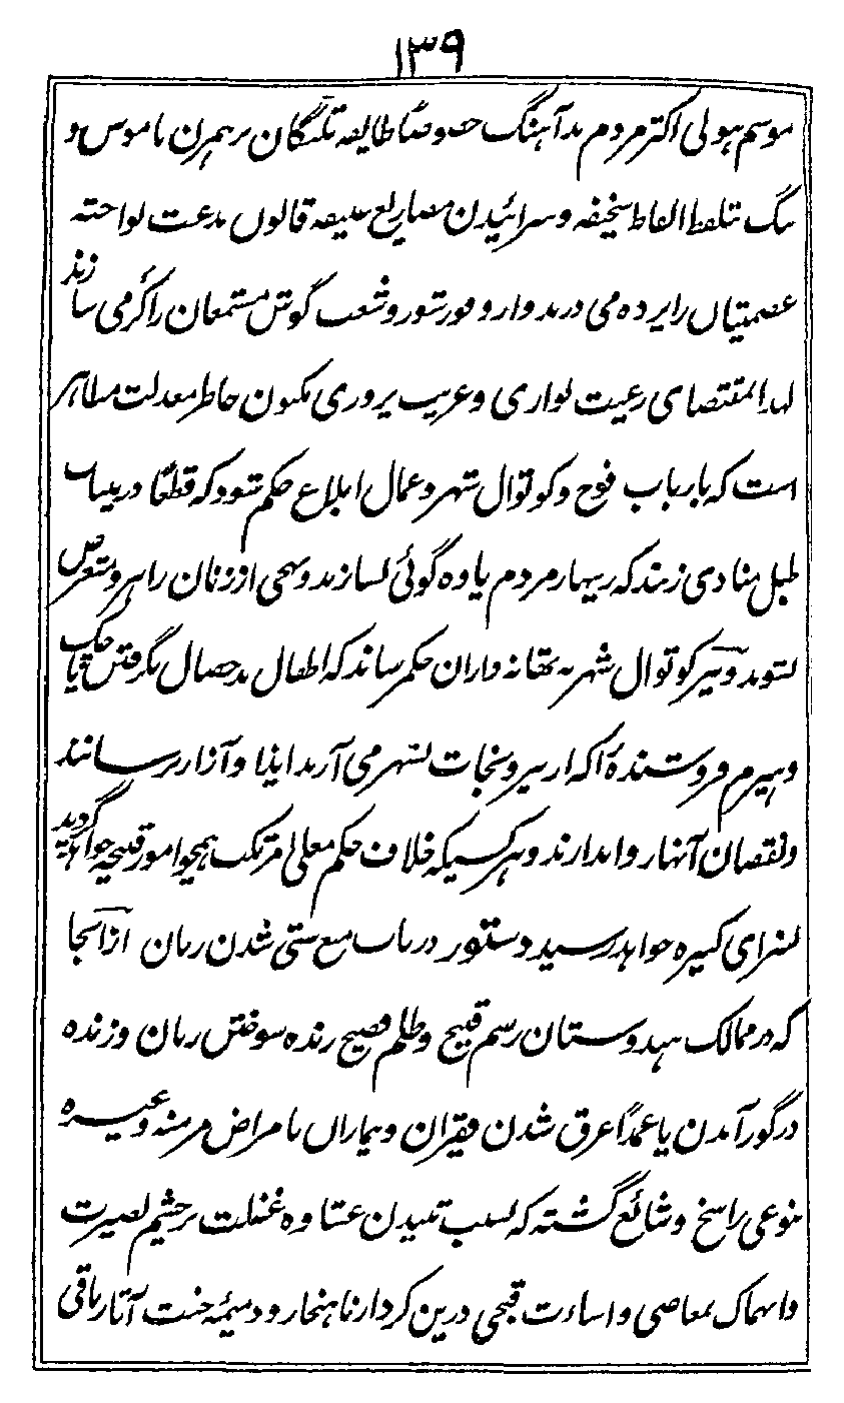 ۱۳۹
موسم هولی اکثر مردم بدآهنگ خصوصًا طایفه تلنگان بر همزن ناموس و
ننگ بتلفظ الفاظ سخیفه و سرائیدن مصاریع عنیفه قانون بدعت نواخته
عصمتیان را پرده می درند و از وفور شور و شعب گوش مستمعان را کر می سازند
لهذا مقتضای رعیت نوازی و غریب پروری مکنون خاطر معدلت مظاهر
است که بارباب فوج و کوتوال شهر و عمال ابلاغ حکم شود که قطعًا درینباب
طبل منادی زنند که زینهار مردم یاوه گوئی نسازند و نهجی از زنان راهرو متعرض
نشوند و نیز کوتوال شهر به تهانه داران حکم رساند که اطفال بدخصال بگرفتن
وهیزم فروشنده اکه از بیرونجات بشهر می آرند ایذا و آزار نرسانند
و نقصان آنها روا ندارند و هر کسیکه خلاف حکم معلی مرتکب همچو امور قبیحه خواهد گردید
بسزای کبیره خواهد رسید دستور درباب منع ستی شدن زنان ازانجا
که در ممالک هندوستان رسم قبیح و ظلم فصیح زنده سوختن زنان و زنده
در گور آمدن یا عمدًا غرق شدن فقیران و بیماران بامراض مزمنه وغیره
بنوعی راسخ و شائع گشته که بسبب تنیدن غشاوه غفلت بر چشم بصیرت
وانهماک بمعاصی و اساءت قبحی درین کردار ناهنجار و ذمیمه خبث آثار باقی